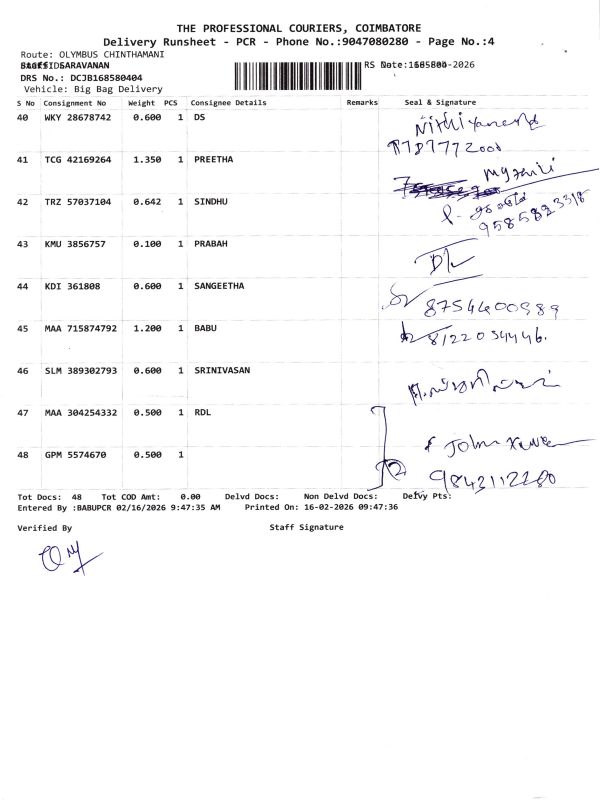 THE PROFESSIONAL COURIERS, COIMBATORE
Delivery Runsheet - PCR - Phone No.:9047080280 - Page No.:4
Route: OLYMBUS CHINTHAMANI
SARAVANAN
DRS No.: DCJB168580404
Vehicle: Big Bag Delivery
S No Consignment No Weight PCS Consignee Details Remarks Seal & Signature
40 WKY 28678742 0.600 1 DS
41 TCG 42169264 1.350 1 PREETHA
42 TRZ 57037104 0.642 1 SINDHU
9585823318
43 KMU 3856757 0.100 1 PRABAH
44 KDI 361808 0.600 1 SANGEETHA
8754400989
45 MAA 715874792 1.200 1 BABU
8122034446.
46 SLM 389302793 0.600 1 SRINIVASAN
47 MAA 304254332 0.500 1 RDL
John
48 GPM 5574670 0.500 1
9843112280
Tot Docs: 48 Tot COD Amt: 0.00 Delvd Docs: Non Delvd Docs: Delvy Pts:
Entered By :BABUPCR 02/16/2026 9:47:35 AM Printed On: 16-02-2026 09:47:36
Verified By Staff Signature